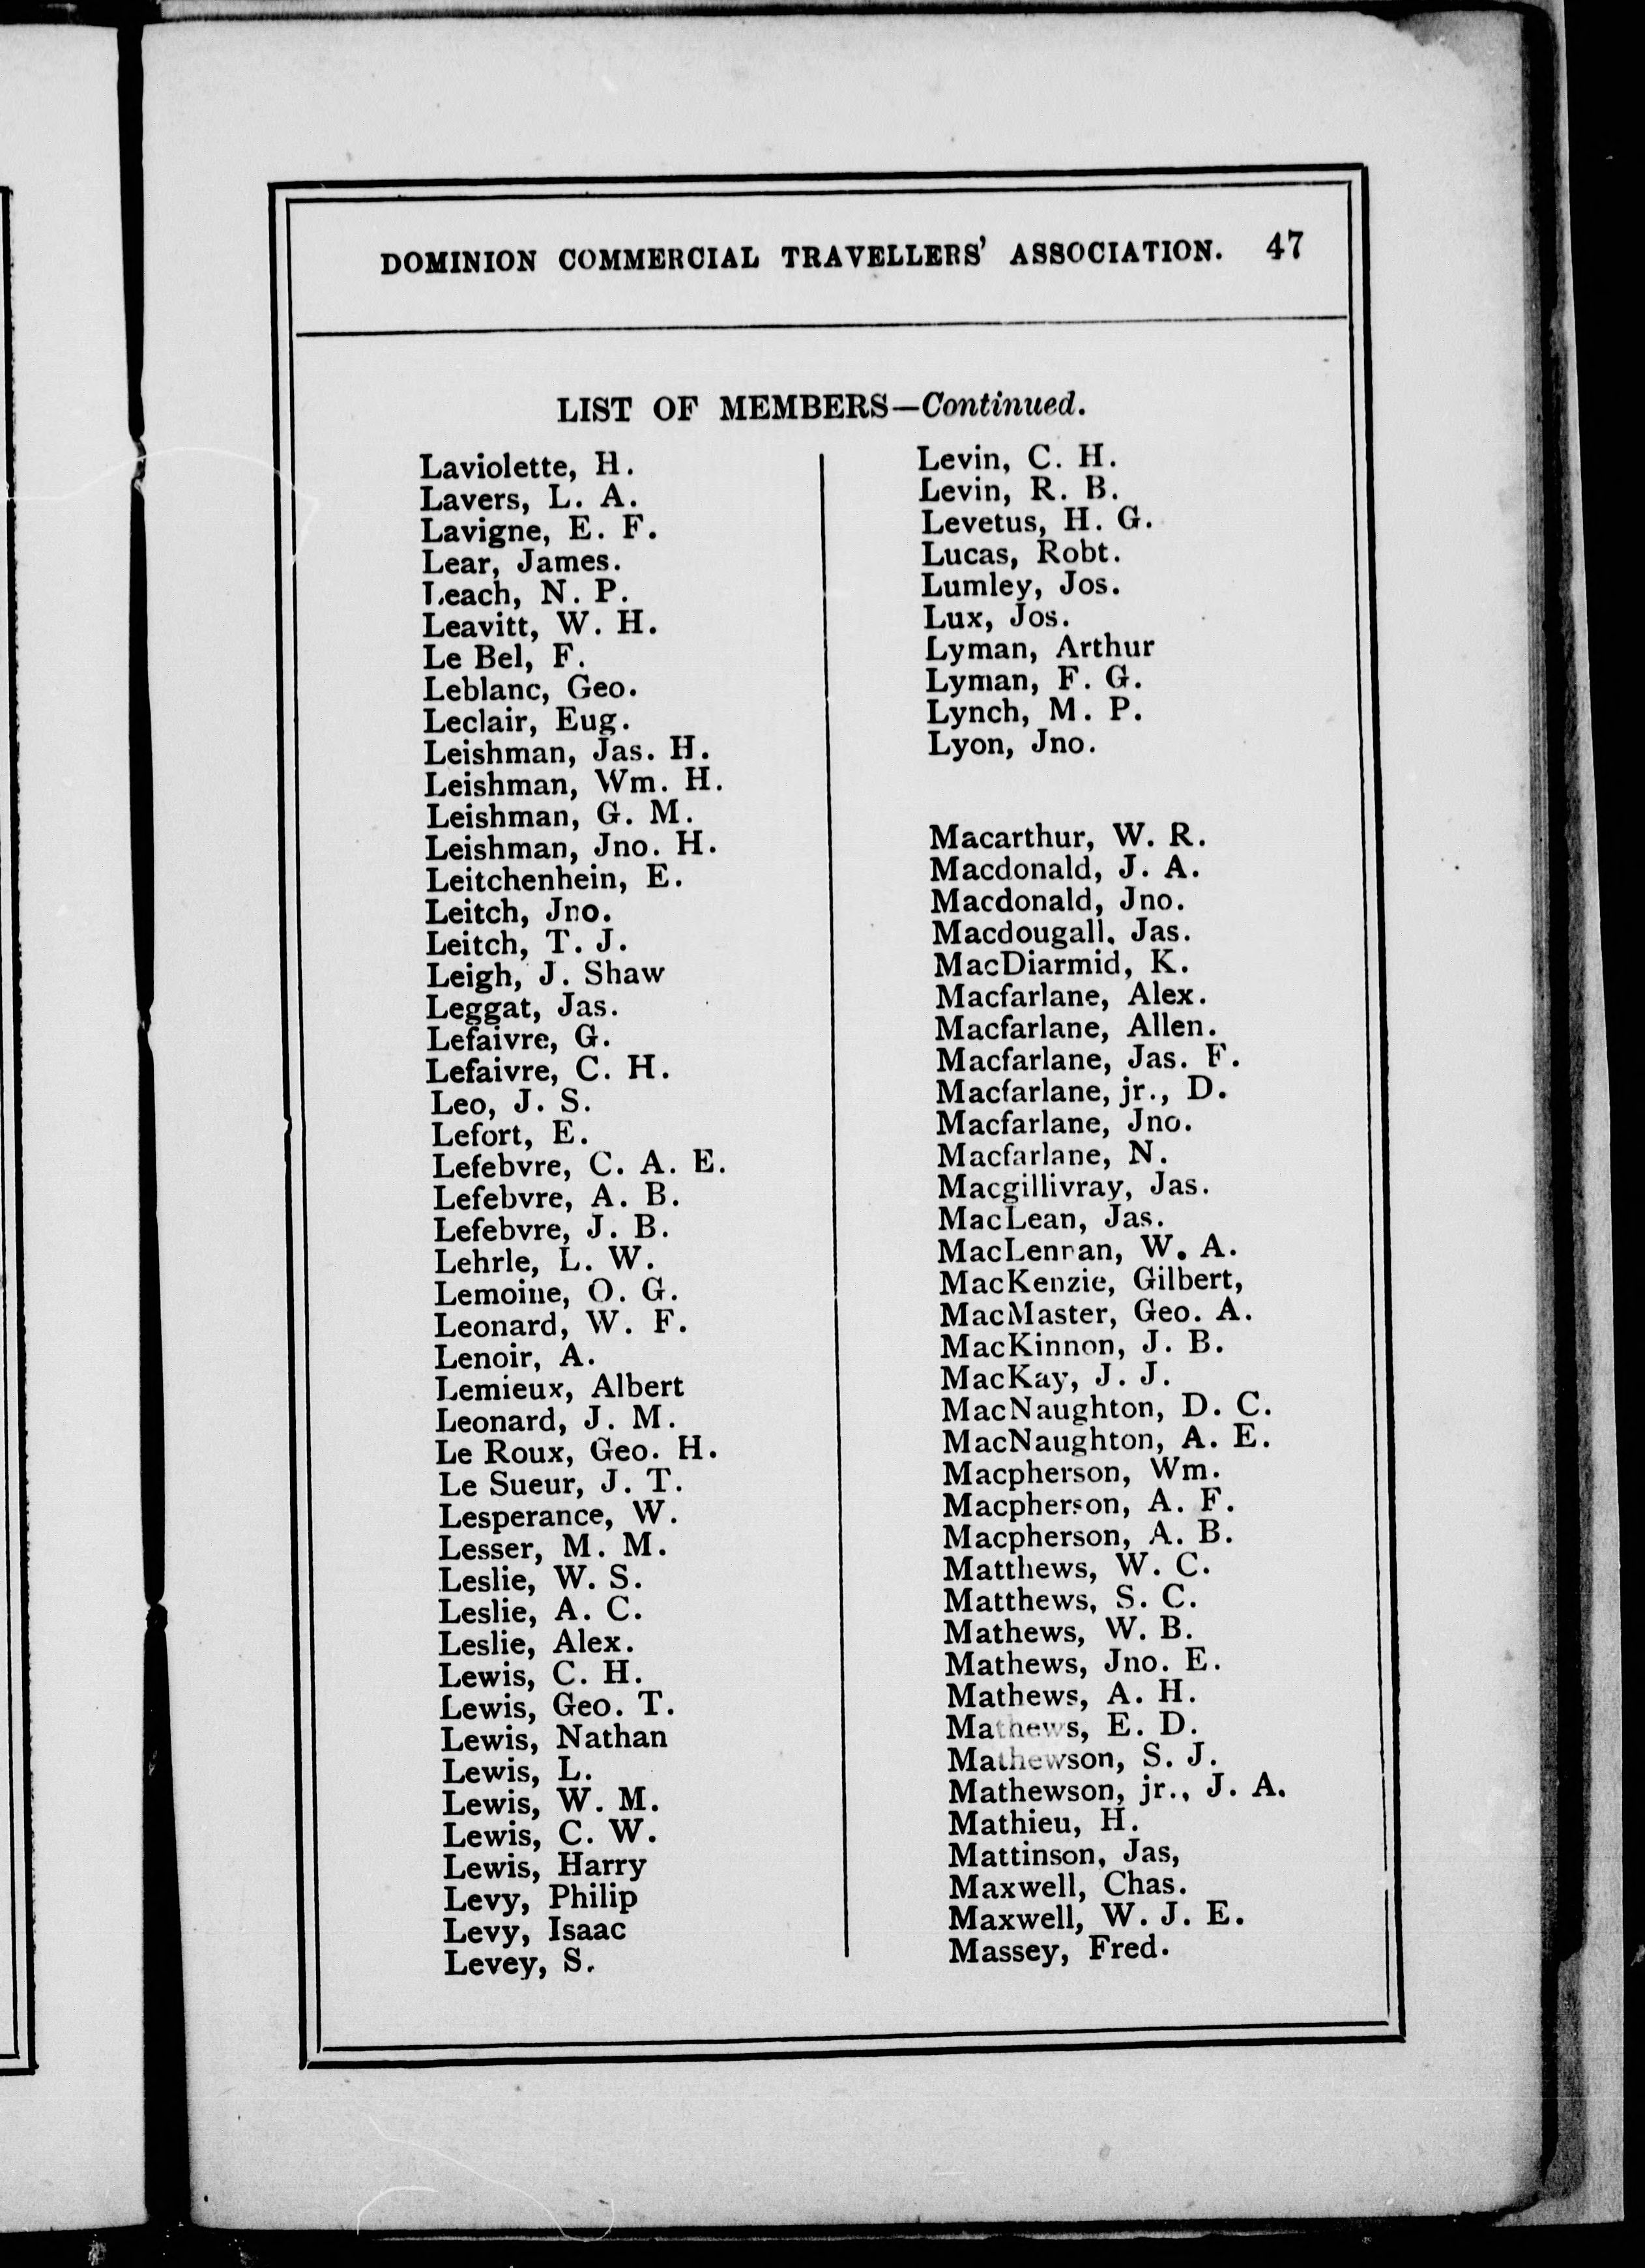 DOMINION COMMERCIAL TRAVELLERS' ASSOCIATION. 47
LIST OF MEMBERS—Continued.
Laviolette, H.
Lavers, L. A.
Lavigne, E. F.
Lear, James.
Leach, N. P.
Leavitt, W. H.
Le Bel, F.
Leblanc, Geo.
Leclair, Eug.
Leishman, Jas. H.
Leishman, Wm. H.
Leishman, G. M.
Leishman, Jno. H.
Leitchenhein, E.
Leitch, Jno.
Leitch, T. J.
Leigh, J. Shaw
Leggat, Jas.
Lefaivre, G.
Lefaivre, C. H.
Leo, J. S.
Lefort, E.
Lefebvre, C. A. E.
Lefebvre, A. B.
Lefebvre, J. B.
Lehrle, L. W.
Lemoine, O. G.
Leonard, W. F.
Lenoir, A.
Lemieux, Albert
Leonard, J. M.
Le Roux, Geo. H.
Le Sueur, J. T.
Lesperance, W.
Lesser, M. M.
Leslie, W. S.
Leslie, A. C.
Leslie, Alex.
Lewis, C. H.
Lewis, Geo. T.
Lewis, Nathan
Lewis, L.
Lewis, W. M.
Lewis, C. W.
Lewis, Harry
Levy, Philip
Levy, Isaac
Levey, S.
Levin, C. H.
Levin, R. B.
Levetus, H. G.
Lucas, Robt.
Lumley, Jos.
Lux, Jos.
Lyman, Arthur
Lyman, F. G.
Lynch, M. P.
Lyon, Jno.
Macarthur, W. R.
Macdonald, J. A.
Macdonald, Jno.
Macdougall, Jas.
MacDiarmid, K.
Macfarlane, Alex.
Macfarlane, Allen.
Macfarlane, Jas. F.
Macfarlane, jr., D.
Macfarlane, Jno.
Macfarlane, N.
Macgillivray, Jas.
MacLean, Jas.
MacLennan, W. A.
MacKenzie, Gilbert,
MacMaster, Geo. A.
MacKinnon, J. B.
MacKay, J. J.
MacNaughton, D. C.
MacNaughton, A. E.
Macpherson, Wm.
Macpherson, A. F.
Macpherson, A. B.
Matthews, W. C.
Matthews, S. C.
Mathews, W. B.
Mathews, Jno. E.
Mathews, A. H.
Mathews, E. D.
Mathewson, S. J.
Mathewson, jr., J. A.
Mathieu, H.
Mattinson, Jas,
Maxwell, Chas.
Maxwell, W. J. E.
Massey, Fred.